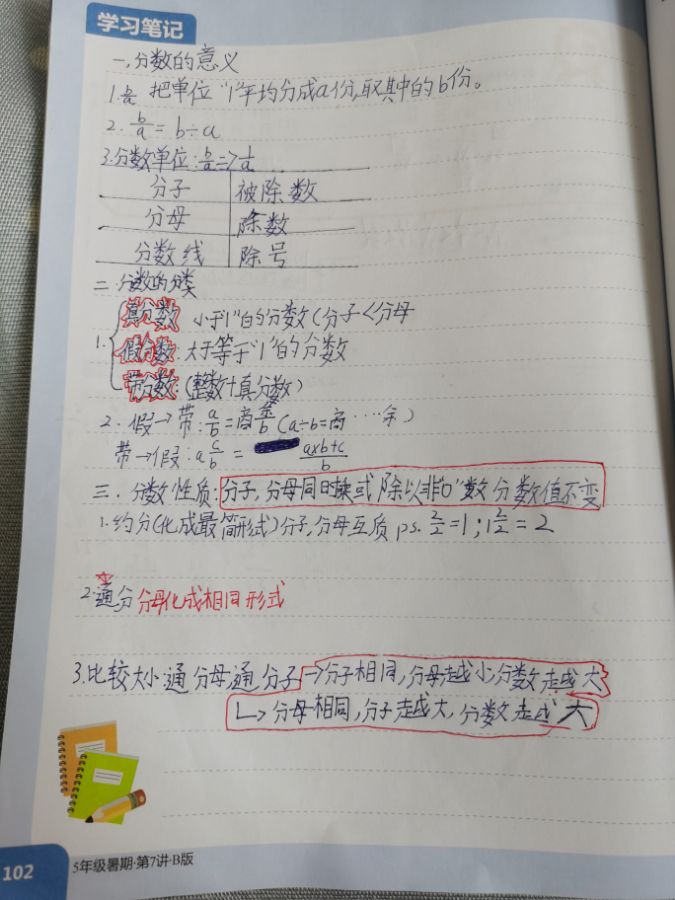 学习笔记
一,分数的意义
1. b/a 把单位"1"平均分成a份,取其中的b份。
2. b/a = b÷a
3.分数单位: b/a => 1/a
分子 被除数
分母 除数
分数线 除号
二 分数的分类
1. 真分数 小于"1"的分数(分子<分母
假分数: 大于等于"1"的分数
带分数: (整数+真分数)
2. 假→带: a/b = 商 余/b (a÷b=商····余)
带→假: a c/b = a×b+c/b
三. 分数性质: 分子,分母同时乘或除以非"0"数分数值不变
1.约分(化成最简形式)分子,分母互质 ps. 2/2=1; 1 2/2 = 2
2.通分 分母化成相同形式
3.比较大小通分母,通分子→分子相同,分母越小,分数越大
↳分母相同,分子越大,分数越大
102 5年级暑期·第7讲·B版